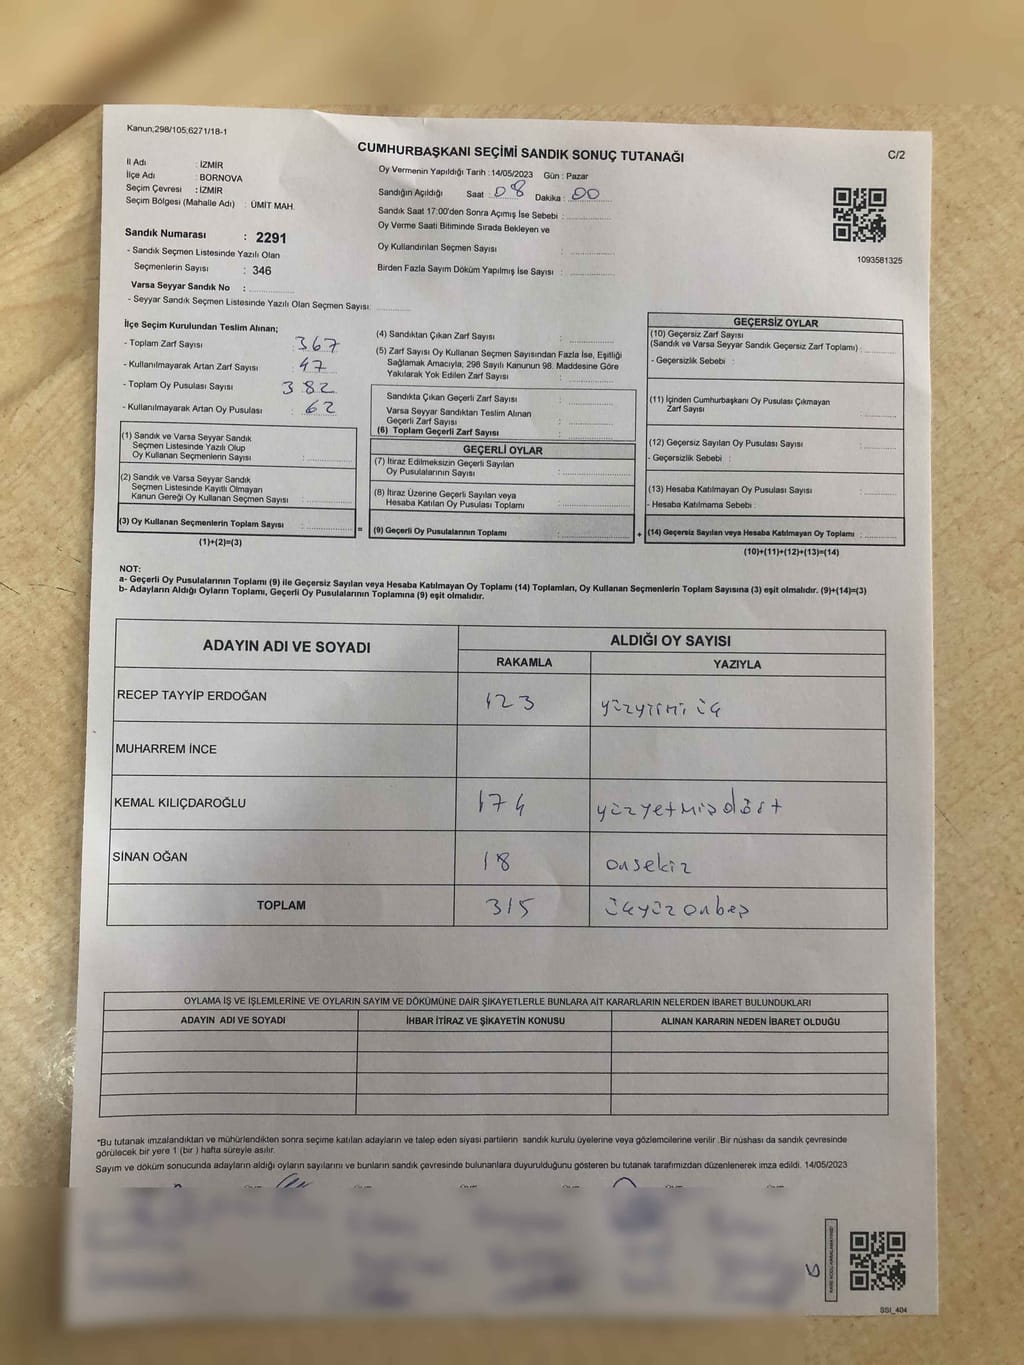 Kanun,298/105,6271/18-1
CUMHURBAŞKANI SEÇİMİ SANDIK SONUÇ TUTANAĞI
C/2
İl Adı : İZMİR
İlçe Adı : BORNOVA
Seçim Çevresi : İZMİR
Seçim Bölgesi (Mahalle Adı) : ÜMİT MAH.
Oy Vermenin Yapıldığı Tarih :14/05/2023 Gün : Pazar
Sandığın Açıldığı Saat : 08 Dakika : 00
Sandık Saat 17:00'den Sonra Açımış İse Sebebi :
Oy Verme Saati Bitiminde Sırada Bekleyen ve
Oy Kullandırılan Seçmen Sayısı :
Birden Fazla Sayım Döküm Yapılmış İse Sayısı :
1093581325
Sandık Numarası : 2291
- Sandık Seçmen Listesinde Yazılı Olan
Seçmenlerin Sayısı : 346
Varsa Seyyar Sandık No :
- Seyyar Sandık Seçmen Listesinde Yazılı Olan Seçmen Sayısı:
İlçe Seçim Kurulundan Teslim Alınan;
- Toplam Zarf Sayısı : 367
- Kullanılmayarak Artan Zarf Sayısı : 47
- Toplam Oy Pusulası Sayısı : 382
- Kullanılmayarak Artan Oy Pusulası : 62
(1) Sandık ve Varsa Seyyar Sandık
Seçmen Listesinde Yazılı Olup
Oy Kullanan Seçmenlerin Sayısı :
(2) Sandık ve Varsa Seyyar Sandık
Seçmen Listesinde Kayıtlı Olmayan
Kanun Gereği Oy Kullanan Seçmen Sayısı :
(3) Oy Kullanan Seçmenlerin Toplam Sayısı :
(1)+(2)=(3)
=
(4) Sandıktan Çıkan Zarf Sayısı :
(5) Zarf Sayısı Oy Kullanan Seçmen Sayısından Fazla İse, Eşitliği
Sağlamak Amacıyla, 298 Sayılı Kanunun 98. Maddesine Göre
Yakılarak Yok Edilen Zarf Sayısı :
Sandıkta Çıkan Geçerli Zarf Sayısı :
Varsa Seyyar Sandıktan Teslim Alınan
Geçerli Zarf Sayısı :
(6) Toplam Geçerli Zarf Sayısı :
GEÇERLİ OYLAR
(7) İtiraz Edilmeksizin Geçerli Sayılan
Oy Pusulalarının Sayısı :
(8) İtiraz Üzerine Geçerli Sayılan veya
Hesaba Katılan Oy Pusulası Toplamı :
(9) Geçerli Oy Pusulalarının Toplamı :
+
GEÇERSİZ OYLAR
(10) Geçersiz Zarf Sayısı
(Sandık ve Varsa Seyyar Sandık Geçersiz Zarf Toplamı) :
- Geçersizlik Sebebi :
(11) İçinden Cumhurbaşkanı Oy Pusulası Çıkmayan
Zarf Sayısı :
(12) Geçersiz Sayılan Oy Pusulası Sayısı :
- Geçersizlik Sebebi :
(13) Hesaba Katılmayan Oy Pusulası Sayısı :
- Hesaba Katılmama Sebebi :
(14) Geçersiz Sayılan veya Hesaba Katılmayan Oy Toplamı :
(10)+(11)+(12)+(13)=(14)
NOT:
a- Geçerli Oy Pusulalarının Toplamı (9) ile Geçersiz Sayılan veya Hesaba Katılmayan Oy Toplamı (14) Toplamları, Oy Kullanan Seçmenlerin Toplam Sayısına (3) eşit olmalıdır. (9)+(14)=(3)
b- Adayların Aldığı Oyların Toplamı, Geçerli Oy Pusulalarının Toplamına (9) eşit olmalıdır.
ADAYIN ADI VE SOYADI
ALDIĞI OY SAYISI
RAKAMLA YAZIYLA
RECEP TAYYİP ERDOĞAN 123 yüzyirmi üç
MUHARREM İNCE
KEMAL KILIÇDAROĞLU 174 yüzyetmişdört
SİNAN OĞAN 18 onsekiz
TOPLAM 315 üçyüz onbeş
OYLAMA İŞ VE İŞLEMLERİNE VE OYLARIN SAYIM VE DÖKÜMÜNE DAİR ŞİKAYETLERLE BUNLARA AİT KARARLARIN NELERDEN İBARET BULUNDUKLARI
ADAYIN ADI VE SOYADI İHBAR İTİRAZ VE ŞİKAYETİN KONUSU ALINAN KARARIN NEDEN İBARET OLDUĞU
*Bu tutanak imzalandıktan ve mühürlendikten sonra seçime katılan adayların ve talep eden siyasi partilerin sandık kurulu üyelerine veya gözlemcilerine verilir .Bir nüshası da sandık çevresinde
görülecek bir yere 1 (bir ) hafta süreyle asılır.
Sayım ve döküm sonucunda adayların aldığı oyların sayılarını ve bunların sandık çevresinde bulunanlara duyurulduğunu gösteren bu tutanak tarafımızdan düzenlenerek imza edildi. 14/05/2023
SSI_404